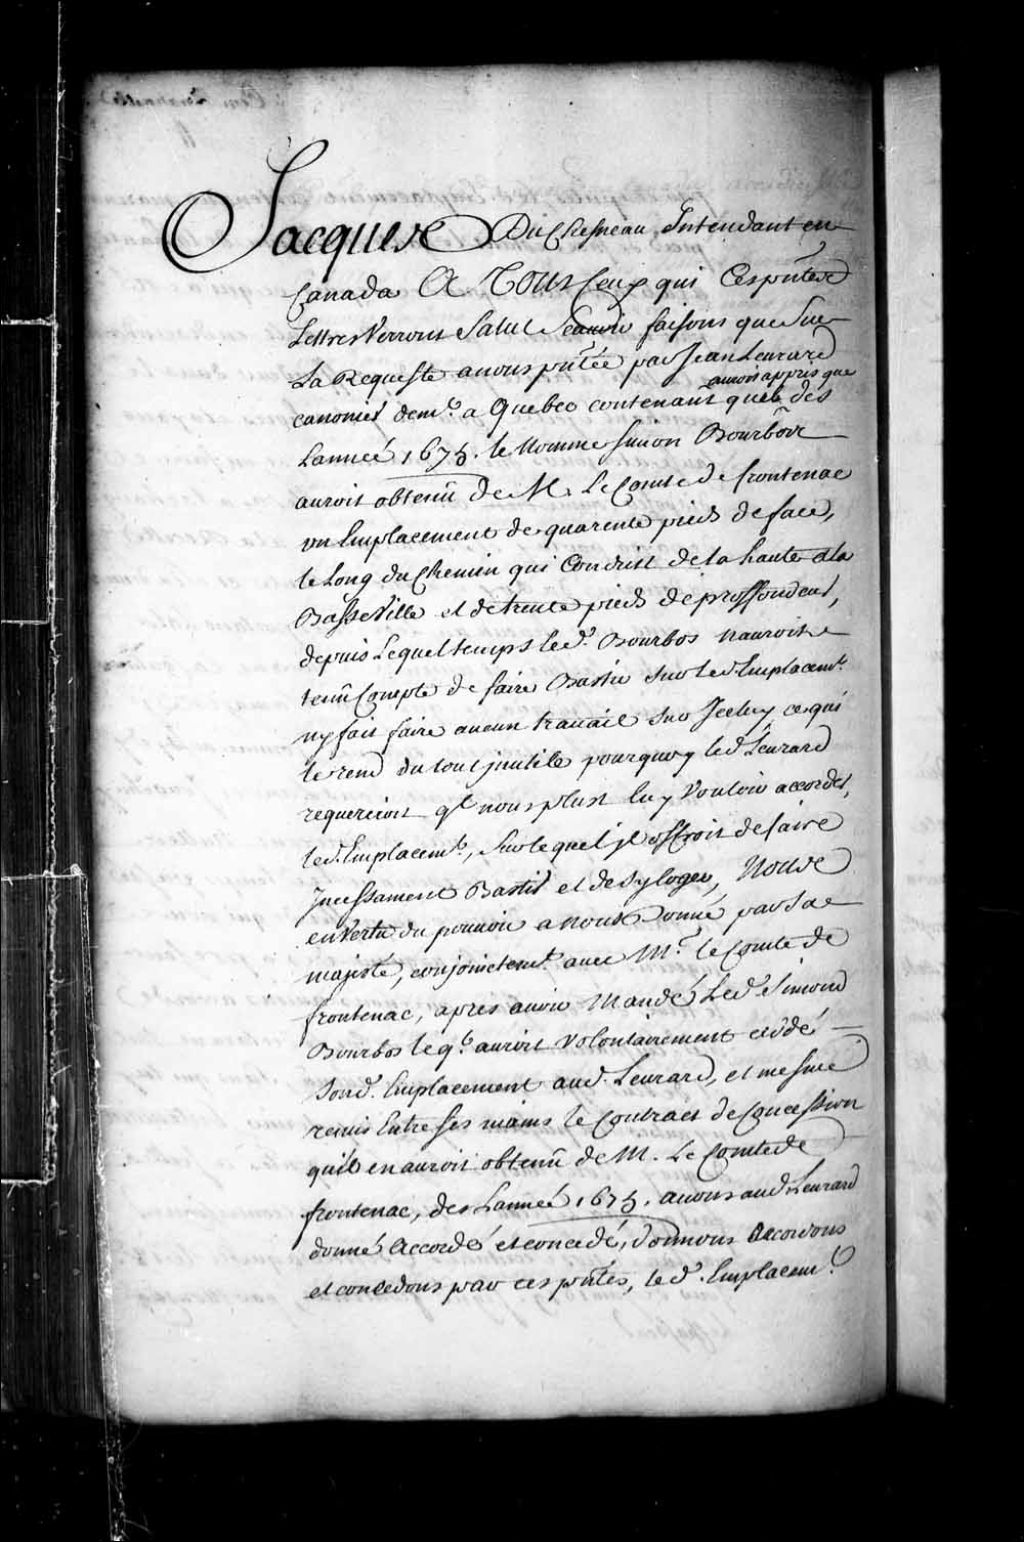 Jacques DuChesneau Intendant en
Canada A Tous Ceux qui Ces pntes
Lettres Verront Salut Scavoir faisons que Sur
La Requeste a nous pntée par Jean Levrard
canonier demt. a Quebec contenant qu'il des
auroit appris que
Lanneé 1675. le Nomme Simon Bourbon
auroit obtenu de M. Le Comte de frontenac
un Emplacement de quarente pieds de face,
le Long du Chemin qui Conduist de la haute a la
Basse Ville et de trente pieds de proffondeur,
depuis Lequel temps led. Bourbos nauroit
tenu Compte de faire Bastir sur led. Emplacemt.
ny fait faire aucun travail sur Jceluy ce qui
le rend du tout jnutile pourquoy led Levrard
requereroit ql nous plust luy Vouloir accorder,
led. Emplacemt., sur lequel jl offroit de faire
Jncessament Bastir et de sy loger, Nous
en Vertu du pouvoir a nous Donné par Sa
majesté, conjoinctemt. avec Mr. le Comte de
frontenac, apres avoir Mandé Led. Simond
Bourbos leql. auroit Volontairement ceddé
sond. Emplacement aud. Levrard, et mesme
remis Entre ses mains le Contract de Concession
quil en auroit obtenu de M. Le Comte de
frontenac, des Lanneé 1675. avons aud Levrard
donné Accordé et concedé, donnons Accordons
et concedons par ces pntes, led. Emplacemt.